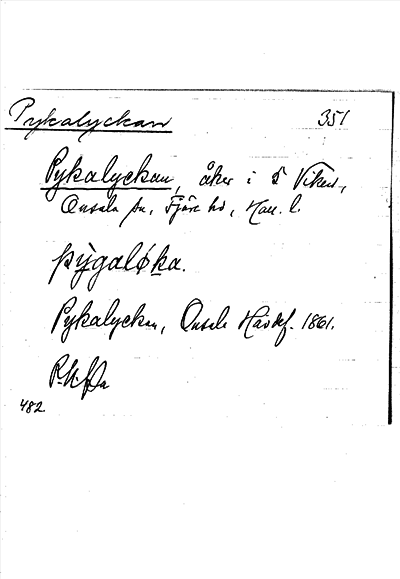 Pykalyckan 351
Pykalyckan, åker i 5 Viken,
Onsala sn, Fjäre hd, Hall. l.
þỳgaløka.
Pykalyckan, Onsala Häradskf. 1861.
482